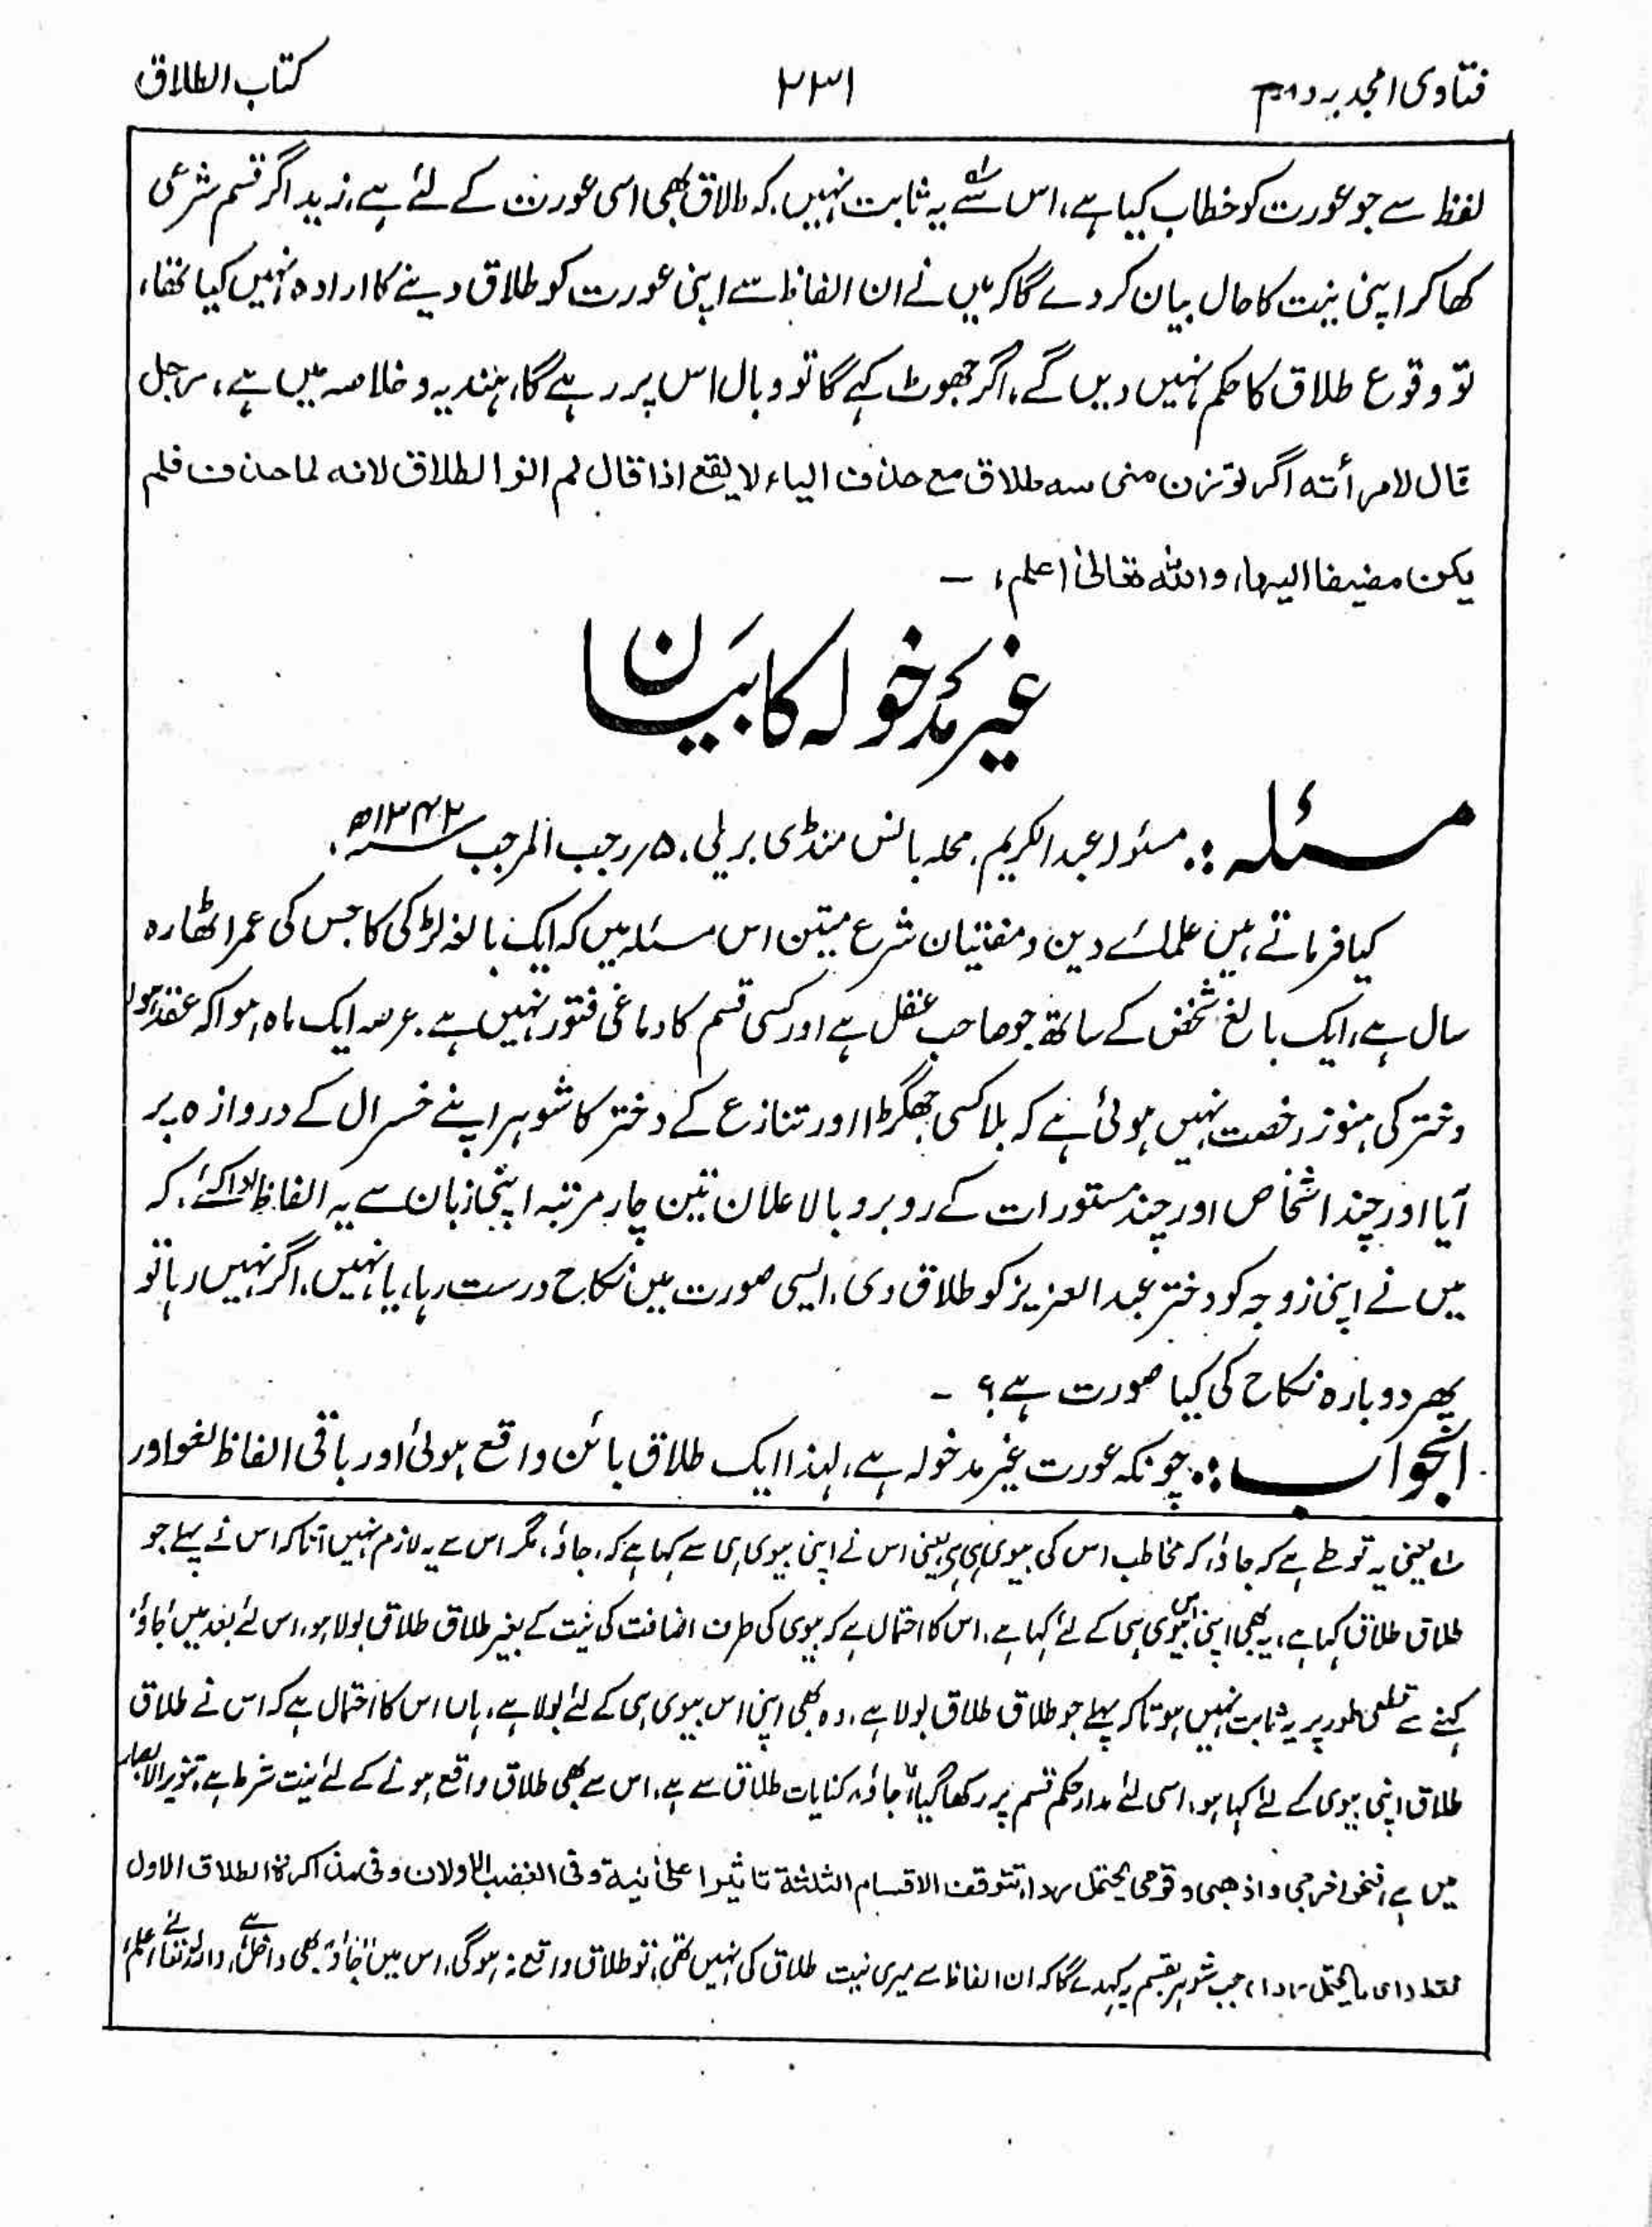 فتاوی امجدیہ دوم ۲۳۱ کتاب الطلاق
لفظ سے جو عورت کو خطاب کیا ہے، اس سے یہ ثابت نہیں کہ طلاق بھی اسی عورت کے لئے ہے، زید اگر قسم شرعی
کھا کر اپنی نیت کا حال بیان کر دے گا کہ میں نے ان الفاظ سے اپنی عورت کو طلاق دینے کا ارادہ نہیں کیا تھا،
تو وقوع طلاق کا حکم نہیں دیں گے، اگر جھوٹ کہے گا تو وبال اس پر رہے گا، ہندیہ و خلاصہ میں ہے، رجل
قال لامرأته اگر توزن منی سه طلاق مع حذف الیاء لا یقع اذا قال لم انو الطلاق لانه لما حذف فلم
یکن مضیفا الیها، والله تعالیٰ اعلم، ــ
غیر مدخولہ کا بیان
مسئلہ :. مسئولہ عبدالکریم، محلہ بانس منڈی بریلی، ۵ رجب المرجب ۱۳۴۲ھ،
کیا فرماتے ہیں علمائے دین و مفتیان شرع متین اس مسئلہ میں کہ ایک بالغہ لڑکی کا جس کی عمر اٹھارہ
سال ہے، ایک بالغ شخص کے ساتھ جو صاحب عقل ہے اور کسی قسم کا دماغی فتور نہیں ہے، عرصہ ایک ماہ ہوا کہ عقد ہوا
دختر کی ہنوز رخصت نہیں ہوئی ہے کہ بلا کسی جھگڑا اور تنازع کے دختر کا شوہر اپنے خسرال کے دروازہ پر
آیا اور چند اشخاص اور چند مستورات کے روبرو بالاعلان تین چار مرتبہ اپنی زبان سے یہ الفاظ ادا کئے، کہ
میں نے اپنی زوجہ کو دختر عبدالعزیز کو طلاق دی، ایسی صورت میں نکاح درست رہا، یا نہیں، اگر نہیں رہا تو
پھر دوبارہ نکاح کی کیا صورت ہے؟ ــ
الجواب :. چونکہ عورت غیر مدخولہ ہے، لہذا ایک طلاق بائن واقع ہوئی اور باقی الفاظ لغو اور
یعنی یہ تو طے ہے کہ جاؤ، کہ مخاطب اس کی بیوی ہی ہے یعنی اس نے اپنی بیوی ہی سے کہا ہے کہ، جاؤ، مگر اس سے یہ لازم نہیں آتا کہ اس نے پہلے جو
طلاق طلاق کہا ہے، یہ بھی اپنی اس بیوی ہی کے لئے کہا ہے، اس کا احتمال ہے کہ بیوی کی طرف اضافت کی نیت کے بغیر طلاق طلاق بولا ہو، اس لئے بعد میں "جاؤ"
کہنے سے قطعی طور پر یہ ثابت نہیں ہوتا کہ پہلے جو طلاق طلاق بولا ہے، وہ بھی اپنی اس بیوی ہی کے لئے بولا ہے، ہاں اس کا احتمال ہے کہ اس نے طلاق
طلاق اپنی بیوی کے لئے کہا ہو، اسی لئے مدار حکم قسم پر رکھا گیا، "جاؤ" کنایات طلاق سے ہے، اس سے بھی طلاق واقع ہونے کے لئے نیت شرط ہے، تنویر الابصار
میں ہے، فنحو اخرجی واذهبی وقومی یحتمل ردا، تتوقف الاقسام الثلثة تاثیرا علی نیة وفی الغضب الاولان وفی مذاکرة الطلاق الاول
فقط (ای ما یحتمل ردا) جب شوہر بقسم یہ کہدے گا کہ ان الفاظ سے میری نیت طلاق کی نہیں تھی، تو طلاق واقع نہ ہوگی، اس میں "جاؤ" بھی داخل ہے، واللہ تعالیٰ اعلم